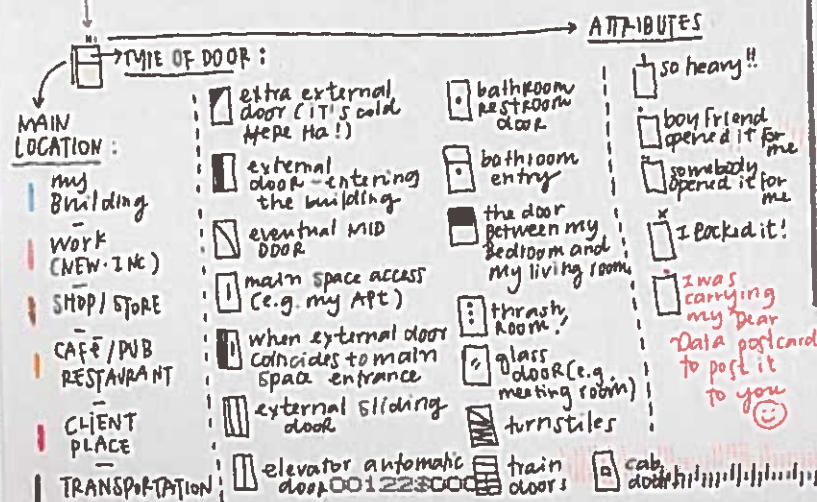 ATTRIBUTES
TYPE OF DOOR :
MAIN
LOCATION :
my
Building
WORK
(NEW·INC)
SHOP / STORE
CAFÉ / PUB
RESTAURANT
CLIENT
PLACE
TRANSPORTATION
extra external
door (it's cold
HERE Ha!)
external
door - entering
the building
eventual MID
DOOR
main space access
(e.g. my APt)
when external door
coincides to main
space entrance
external sliding
door
elevator automatic
door
bathroom
restroom
door
bathroom
entry
the door
Between my
Bedroom and
my living room
thrash
Room!
glass
door (e.g.
meeting room)
turnstiles
train
doors
cab
door
so heavy!!
boyfriend
opened it for
me
somebody
opened it for
me
I locked it!
I was
carrying
my Dear
Data postcard
to post it
to you